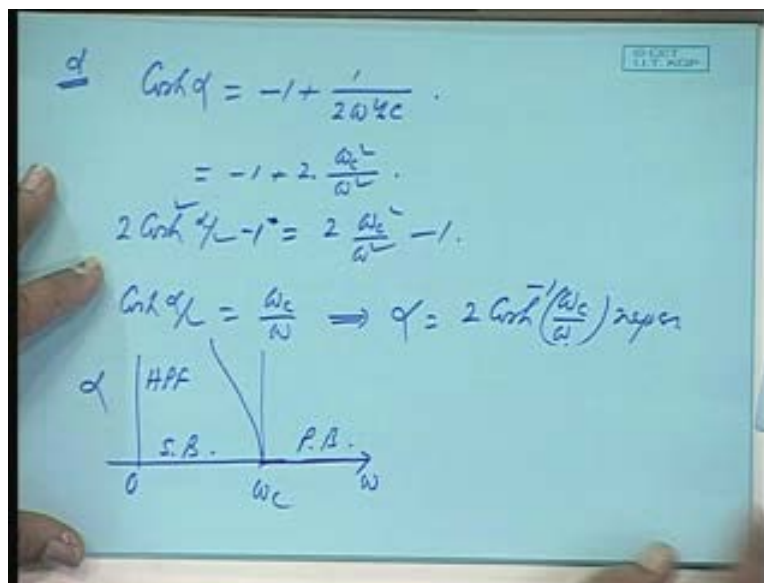 © CET
I.I.T. KGP
α Cosh α = -1 + 1/(2ω²LC) .
= -1 + 2. ωc²/ω² .
2 Cosh² α/2 - 1 = 2 ωc²/ω² - 1.
Cosh α/2 = ωc/ω ⟹ α = 2 Cosh⁻¹(ωc/ω) neper
α HPF
S.B. P.B.
0 ωc ω